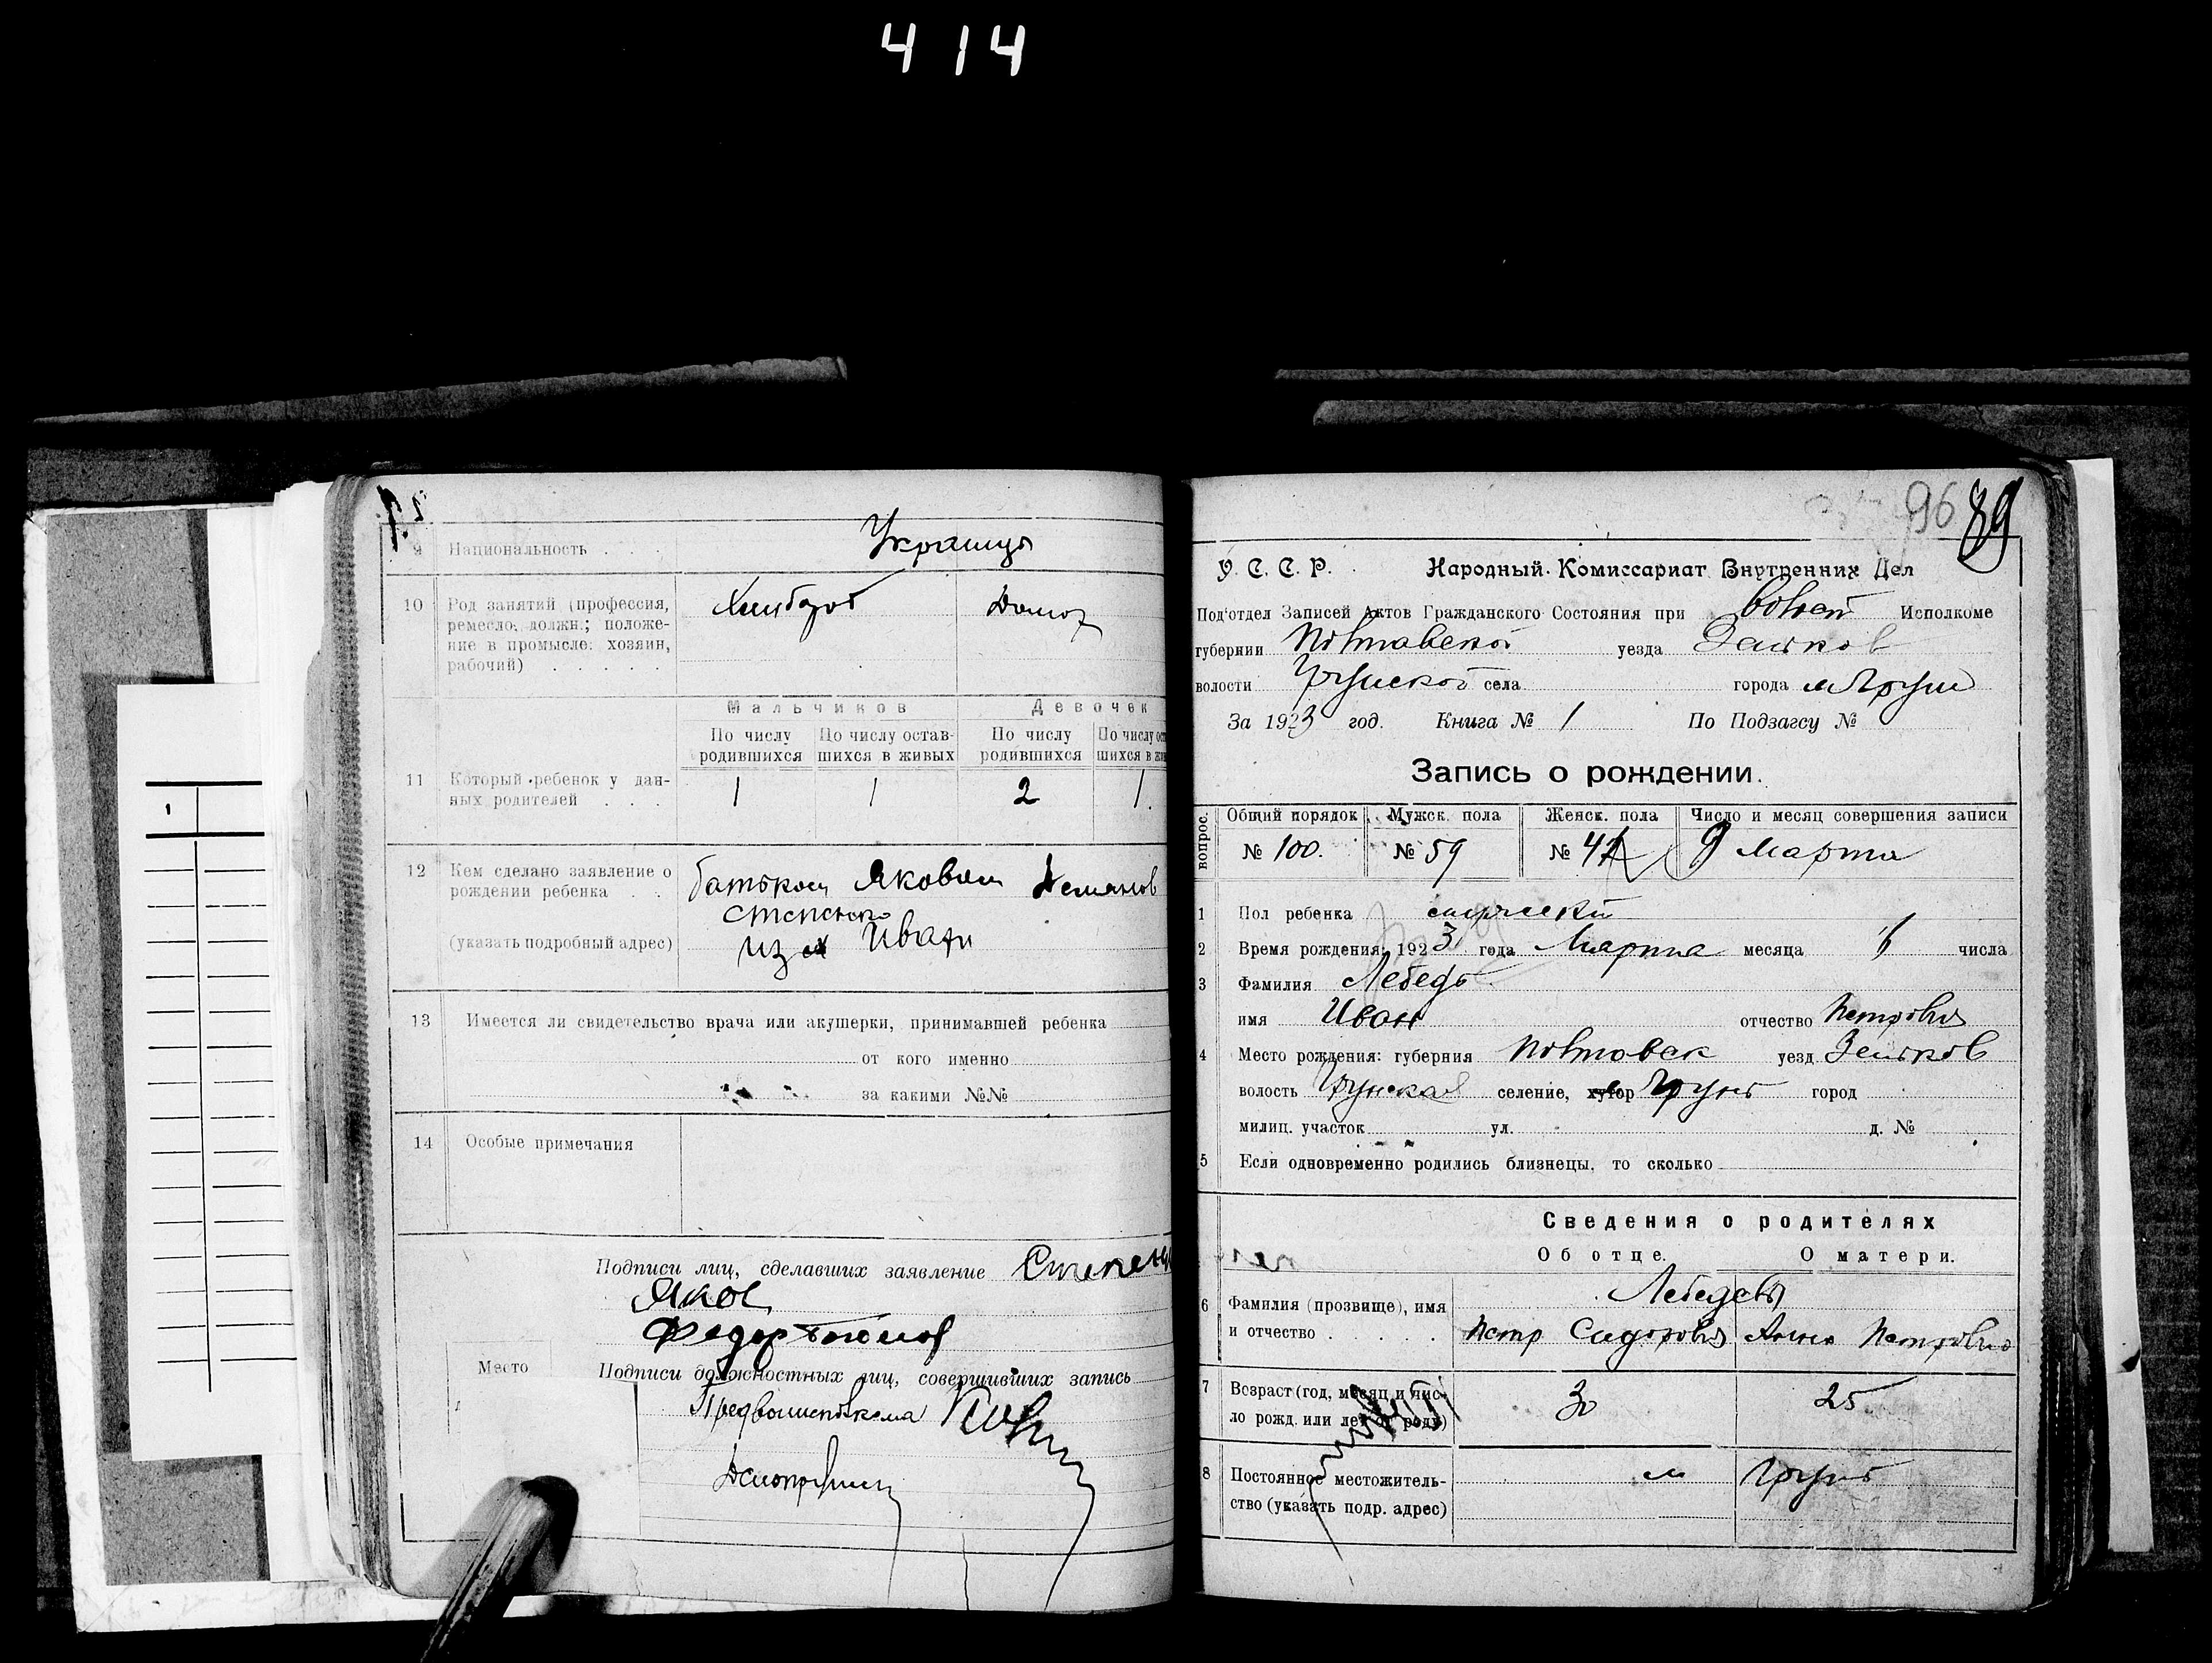 414
9 Национальность . . . Украинцы
10 Род занятий (профессия,
ремесло, должн.; положе-
ние в промысле: хозяин,
рабочий) . . . . .
Хлебороб
Домох
Мальчиков Девочек
По числу родившихся По числу остав-шихся в живых По числу родившихся По числу ос шихся в жи
11 Который ребенок у дан-
ных родителей . . .
1 1 2 1.
12 Кем сделано заявление о
рождении ребенка . .
(указать подробный адрес)
батьком Яковом
степенко
из м
13 Имеется ли свидетельство врача или акушерки, принимавшей ребенка
от кого именно
за какими №№
14 Особые примечания
Подписи лиц, сделавших заявление Степен
Яков
Федор
Место
Подписи должностных лиц, совершивших запись
Предволисполкома
96 89
У. С. С. Р. Народный Комиссариат Внутренних Дел
Под'отдел Записей Актов Гражданского Состояния при Волост Исполкоме
губернии Полтавской уезда Зеньков
волости Грунской села города м Грунь
За 1923 год. Книга № 1 По Подзагсу №
Запись о рождении.
вопрос.
Общий порядок Мужск. пола Женск. пола Число и месяц совершения записи
№ 100. № 59 № 41 9 Марта
1 Пол ребенка мужеский
2 Время рождения: 1923 года Марта месяца 6 числа
3 Фамилия Лебедь
имя Иван отчество Петрович
4 Место рождения: губерния Полтавск уезд Зеньков
волость Грунская селение, хутор Грунь город
милиц. участок ул. д. №
5 Если одновременно родились близнецы, то сколько
Сведения о родителях
Об отце. О матери.
6 Фамилия (прозвище), имя
и отчество . . . . .
Лебедевы
Петр Сидорович Анна Петровна
7 Возраст (год, месяц и чис-
ло рожд. или лет от роду)
30 25
8 Постоянное местожитель-
ство (указать подр. адрес)
м Грунь